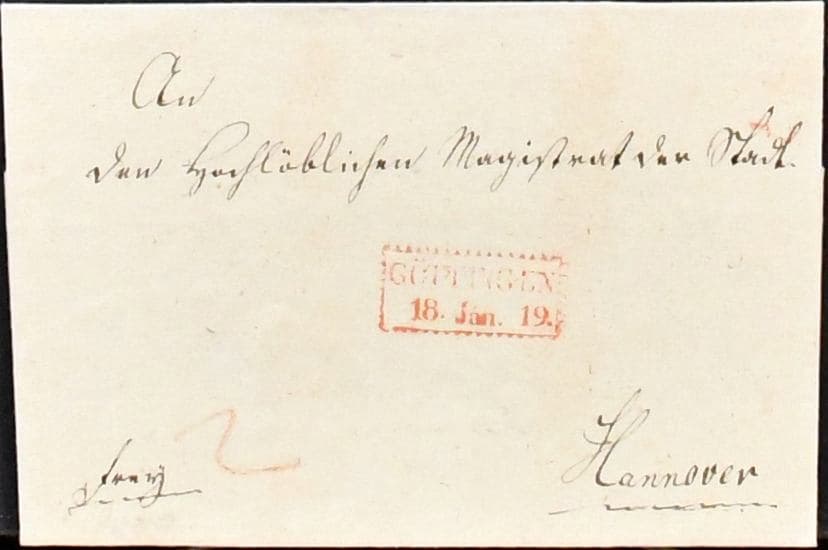 An
den Hochlöblichen Magistrat der Stadt.
GÖTTINGEN
18. Jan. 19.
2
frey
Hannover